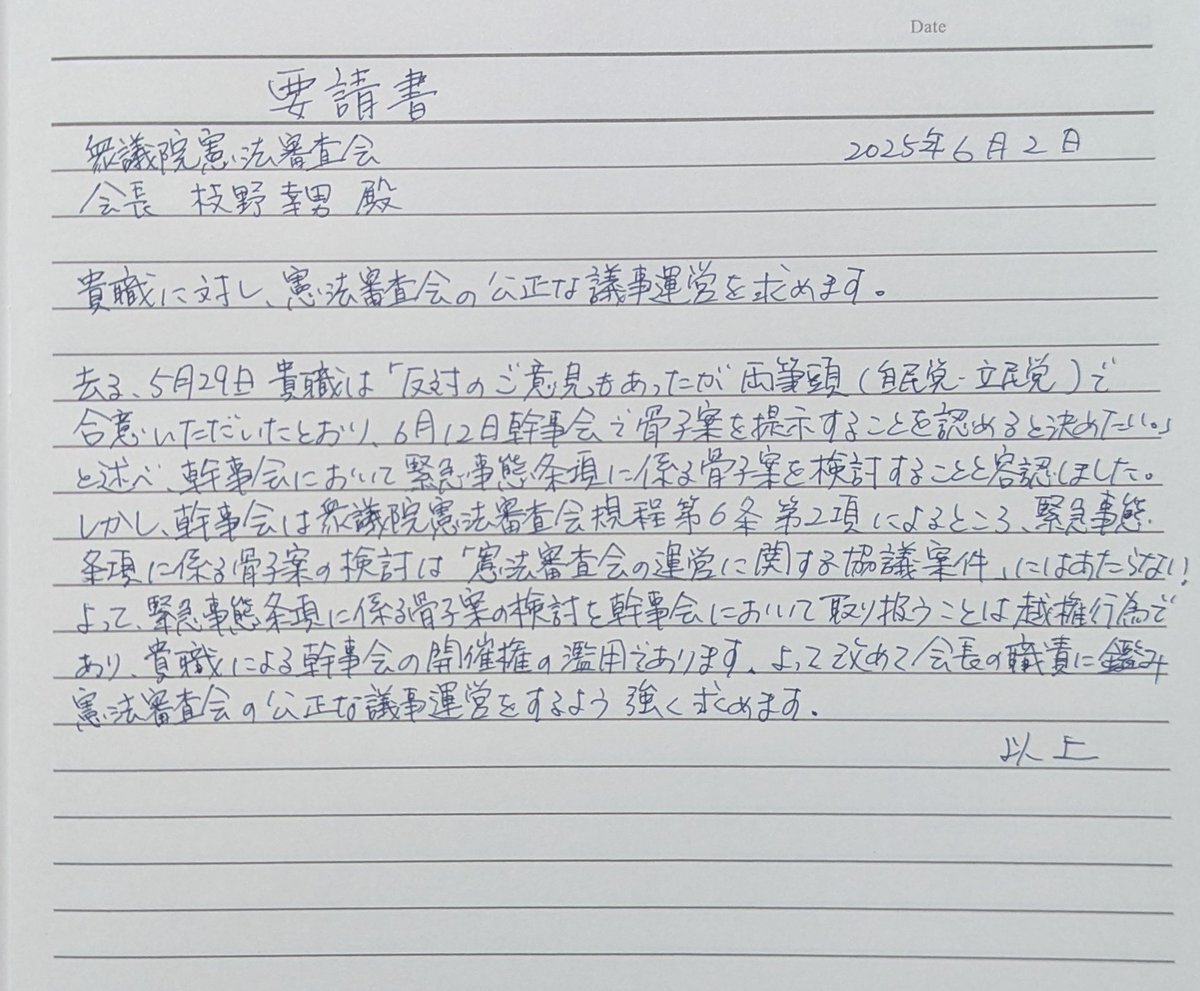 Date
要請書
衆議院憲法審査会 2025年6月2日
会長 枝野幸男 殿
貴職に対し、憲法審査会の公正な議事運営を求めます。
去る、5月29日 貴職は「反対のご意見もあったが両筆頭(自民党・立民党)で
合意いただいたとおり、6月12日幹事会で骨子案を提示することを認めると決めたい。」
と述べ、幹事会において緊急事態条項に係る骨子案を検討することを容認しました。
しかし、幹事会は衆議院憲法審査会規程第6条第2項によるところ、緊急事態
条項に係る骨子案の検討は「憲法審査会の運営に関する協議案件」にはあたらない!
よって、緊急事態条項に係る骨子案の検討を幹事会において取り扱うことは越権行為で
あり、貴職による幹事会の開催権の濫用であります。よって改めて会長の職責に鑑み
憲法審査会の公正な議事運営をするよう強く求めます。
以上